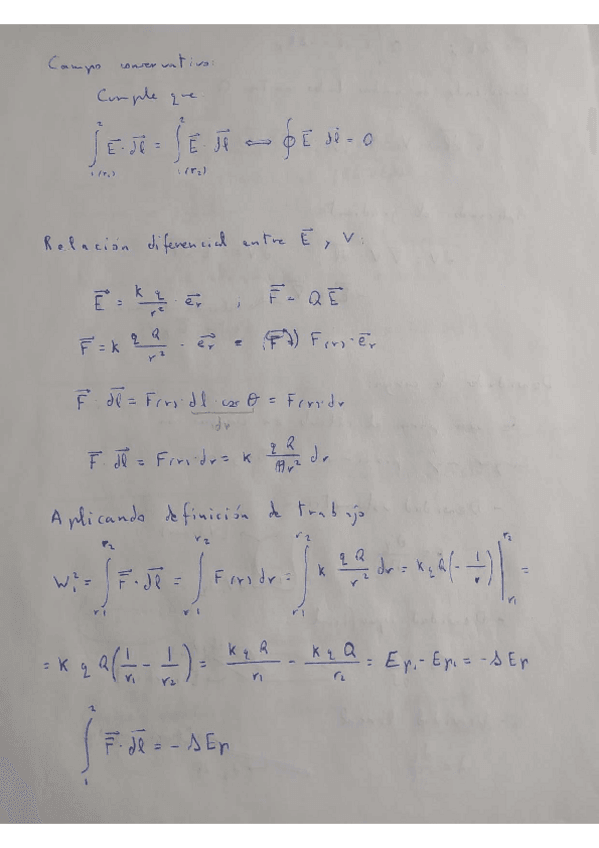 Campo conservativo:
Cumple que
∫₁₍ᵣ₁₎² E⃗ · dl⃗ = ∫₁₍ᵣ₂₎² E⃗ dl⃗ ⟺ ∮ E⃗ dl⃗ = 0
Relación diferencial entre E⃗, V:
E⃗ = k q/r² · e⃗r , F⃗ = Q E⃗
F⃗ = k q Q/r² · e⃗r = F(r) · e⃗r
F⃗ dl⃗ = F(r) · dl · cos θ = F(r) · dr
dr
F⃗ dl⃗ = F(r) · dr = k q Q/r² dr
Aplicando definición de trabajo
W₁² = ∫ᵣ₁^r₂ F⃗ · dl⃗ = ∫ᵣ₁^r₂ F(r) dr = ∫ᵣ₁^r₂ k q Q/r² dr = k q Q (-1/r) |ᵣ₁^r₂ =
= k q Q (1/r₁ - 1/r₂) = k q Q/r₁ - k q Q/r₂ = Ep₁ - Ep₁ = -ΔEp
∫₁² F⃗ · dl⃗ = -ΔEp